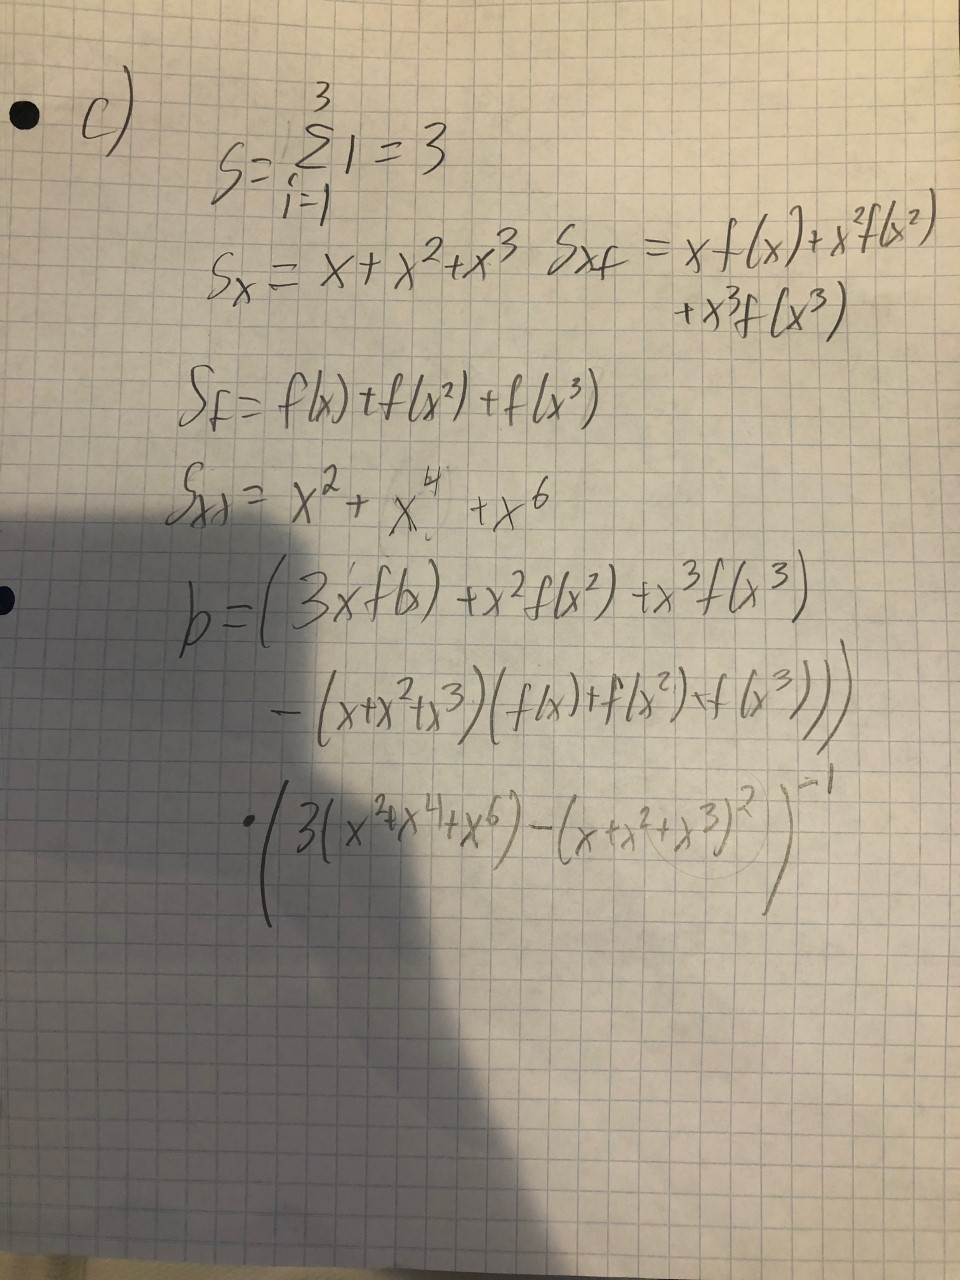 c)
S = Σ_{i=1}^{3} 1 = 3
S_x = x + x² + x³  S_{xf} = x f(x) + x² f(x²)
+ x³ f(x³)
S_f = f(x) + f(x²) + f(x³)
S_{xx} = x² + x⁴ + x⁶
b = ( 3x f(x) + x² f(x²) + x³ f(x³)
- (x + x² + x³)( f(x) + f(x²) + f(x³)))
· ( 3( x² + x⁴ + x⁶) - (x + x² + x³)² )⁻¹